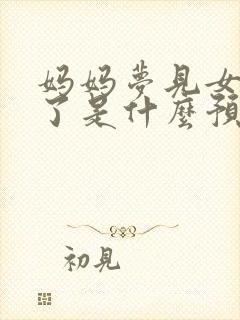 妈妈夢見女
了是什麼預
初見